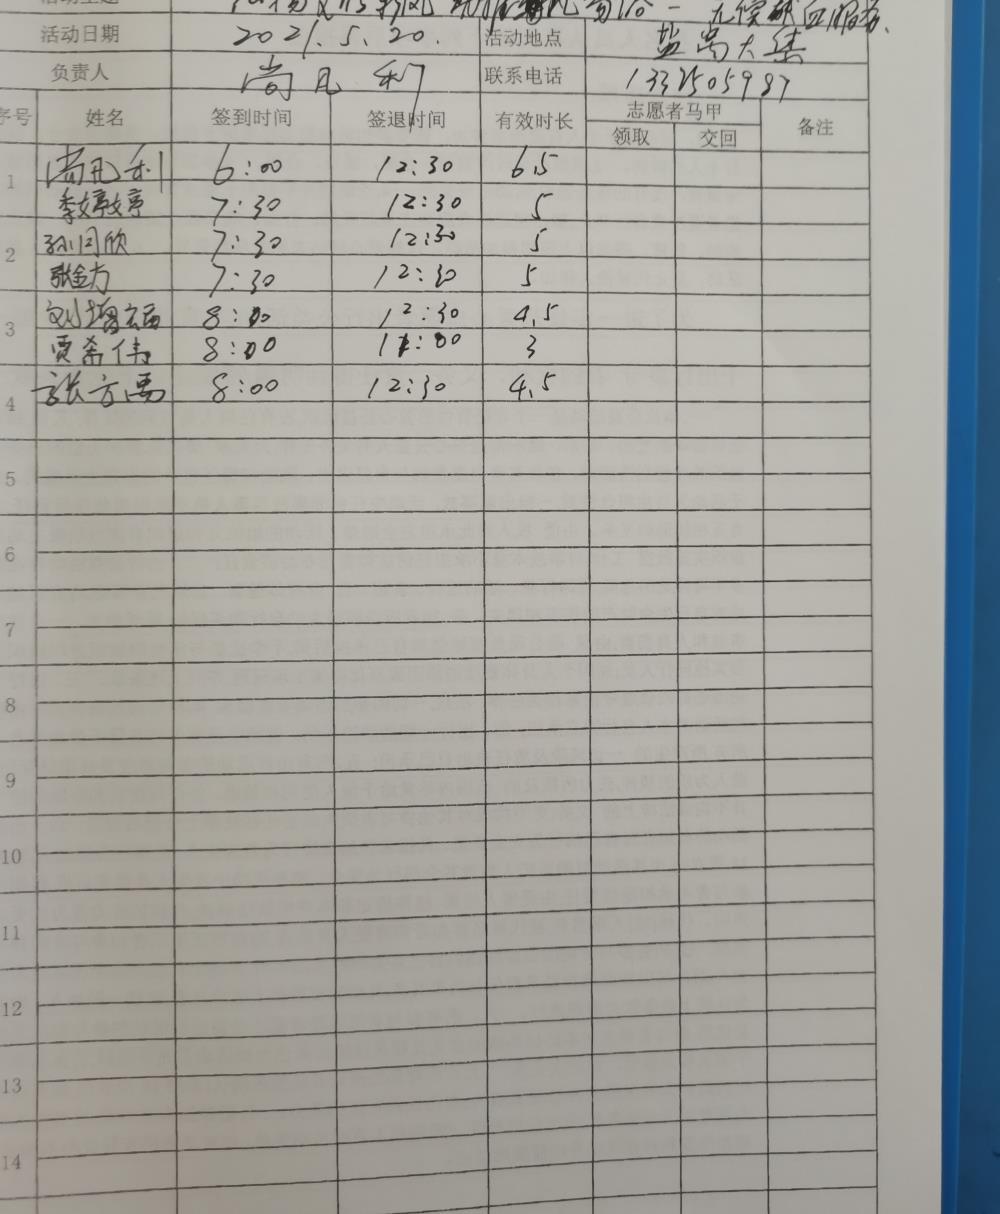 活动主题 无偿献血服务.
活动日期 2021.5.20. 活动地点 盐窝大集
负责人 尚凡利 联系电话
序号 姓名 签到时间 签退时间 有效时长 志愿者马甲 备注
领取 交回
1 尚凡利 6:00 12:30 6.5
李婷婷 7:30 12:30 5
2 孙同欣 7:30 12:30 5
张金力 7:30 12:30 5
3 刘增福 8:00 12:30 4.5
贾希伟 8:00 11:00 3
4 张方禹 8:00 12:30 4.5
5
6
7
8
9
10
11
12
13
14